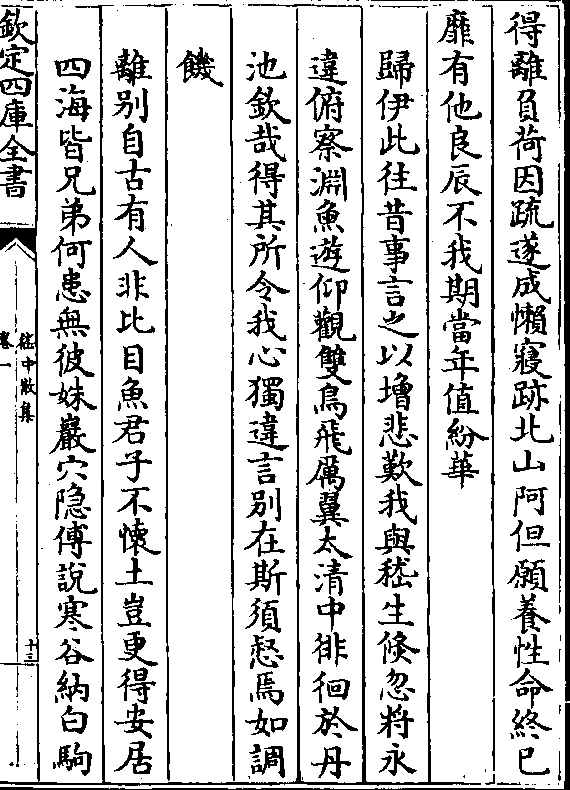 得離負荷因疏遂成懶寢跡北山阿但願養性命終已
靡有他良辰不我期當年值紛華
歸伊此往昔事言之以增悲歎我與嵇生倐忽將永
違俯察淵魚遊仰觀雙鳥飛厲翼太清中徘徊於丹
池欽哉得其所令我心獨違言別在斯須惄焉如調
饑
離别自古有人非比目魚君子不懷土豈更得安居
四海皆兄弟何患無彼姝巖穴隐傅説寒谷納白駒
欽定四庫全書
嵇中散集
卷一
十三